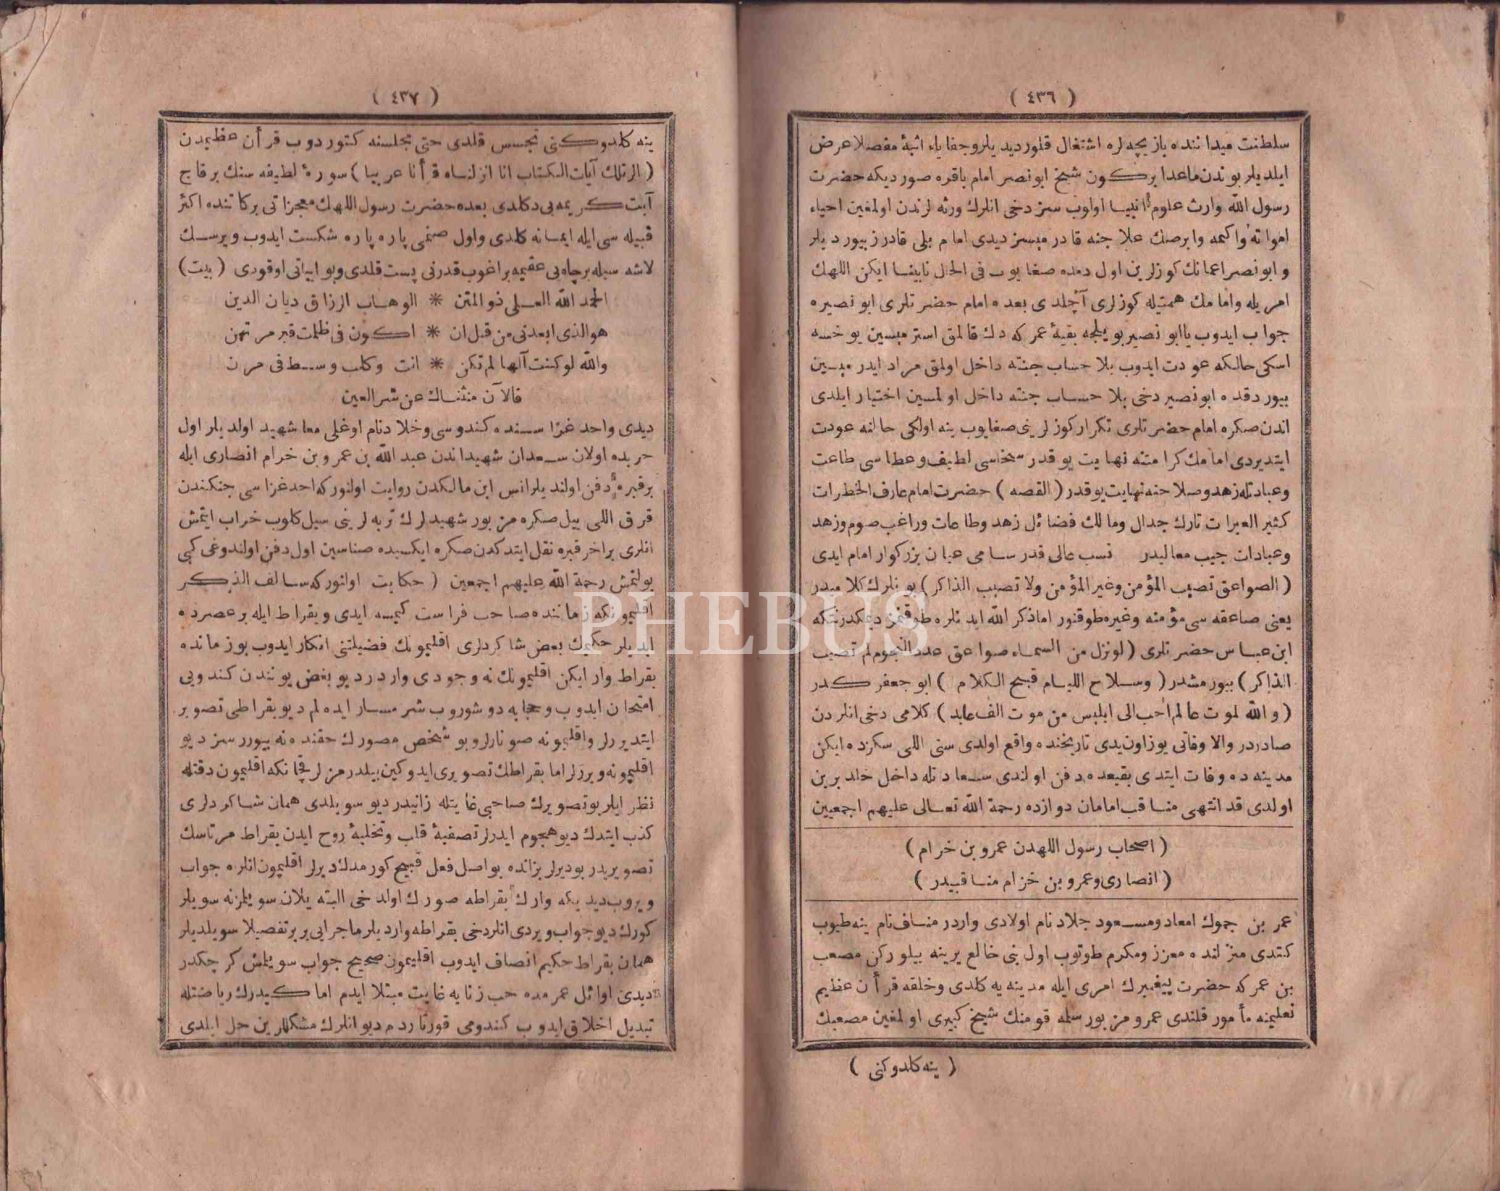 ( ٤٣٦ )
سلطنت میداننده بازیچه‌لره اشتغال قلور دیدیلر وجفایاء اثنهٔ مفصلا عرض
ایلدیلر بوندن ماعدا برکون شیخ ابونصر امام باقره صوردیکه حضرت
رسول الله وارث علوم انبیا اولوب سز دخی انلرك ورثه لرندن اولمغین احیاء
امواته واکمه وابرصك علاجنه قادر میسز دیدی امام بلی قادرز بیوردیلر
و ابونصر اعمانك کوزلرین اول دمده صغایوب فی الحال نابینا ایکن اللهك
امریله وامامك همتیله کوزلری آچلدی بعده امام حضرتلری ابونصیره
جواب ایدوب یا ابونصیر بویلجه بقیهٔ عمرکه دك قالمق استرمیسین یوخسه
اسکی حالکه عودت ایدوب بلا حساب جنته داخل اولمق مراد ایدرمیسین
بیوردقده ابونصیر دخی بلا حساب جنته داخل اولمسین اختیار ایلدی
اندن صکره امام حضرتلری تکرار کوزلرینی صغایوب ینه اولکی حالنه عودت
ایتدیردی امامك کرامتنه نهایت یوقدر سخاسی لطیف وعطاسی طاعت
وعبادتله زهد وصلاحنه نهایت یوقدر ( القصه ) حضرت امام عارف الخطرات
کثیر العبرات تارك جدال ومالك فضائل زهد وطاعات وراغب صوم وزهد
وعبادات جیب معالیدر نسب عالی قدر سامی عیان بزرکوار امام ایدی
( الصواعق تصیب المؤمن وغیر المؤمن ولا تصیب الذاکر ) بونلرك کلامیدر
یعنی صاعقه سی مؤمنه وغیره طوقنور اما ذکر الله ایدنلره طوقنمز دیمکدر نتکه
ابن عباس حضرتلری ( لونزل من السماء صواعق عدد النجوم لم تصیب
الذاکر ) بیورمشدر ( وسلاح اللیام قبیح الکلام ) ابوجعفرکدر
( والله لموت عالم احب الی ابلیس من موت الف عابد ) کلامی دخی انلردن
صادردر والا وفاتی یوز اون یدی تاریخنده واقع اولدی سنی اللی سکزده ایکن
مدینه ده وفات ایتدی بقیعده دفن اولندی سعادتله داخل خلد برین
اولدی قد انتهی مناقب امامان دوازده رحمة الله تعالی علیهم اجمعین
( اصحاب رسول اللهدن عمرو بن خرام )
( انصاری وعمرو بن خزام مناقبیدر )
عمر بن جموك امعاد ومسعود جلاد نام اولادی واردر مناف نام ینه طیوب
کتدی منزلنده معزز ومکرم طوتوب اول بنی خالع یرینه بیلورکن مصعب
بن عمرکه حضرت پیغمبرك امری ایله مدینه یه کلدی وخلقه قرأن عظیم
تعلیمنه مأمور قلندی عمرو مزبور سلمه قومنك شیخ کبیری اولمغین مصعبك
( ینه کلدوکنی )
( ٤٣٧ )
ینه کلدوکنی تجسس قلدی حتی مجلسنه کتوردوب قرأن عظیمدن
( الر تلك آیات الکتاب انا انزلناه قرأنا عربیا ) سورهٔ لطیفه سنك برقاج
آیت کریمه بی دکلدی بعده حضرت رسول اللهك معجزاتی برکاتنده اکثر
قبیله سی ایله ایمانه کلدی واول صنمی پاره پاره شکست ایدوب و برسك
لاشه سیله برچاه بی عقیمه براغوب قدرنی پست قلدی وبو ابیاتی اوقودی ( بیت )
الحمد الله العلی ذو المتن * الوهاب الرزاق دیان الدین
هو الذی ابعدنی من قبل ان * اکون فی ظلمت قبر مرتهن
والله لوکنت آلها لم تکن * انت وکلب وسط فی مرن
فالآن منتناك عن شر العین
دیدی واحد غزا سنده کندوسی وخلاد نام اوغلی معا شهید اولدیلر اول
حربده اولان سعدان شهیداندن عبد الله بن عمرو بن خرام انصاری ایله
برقبره دفن اولندیلر انس ابن مالکدن روایت اولنورکه احد غزاسی جنکندن
قرق اللی ییل صکره مزبور شهیدلرك تربه لرینی سیل کلوب خراب ایتمش
انلری براخر قبره نقل ایتدکدن صکره ایکیسیده صناسین اول دفن اولندوغی کبی
بولنمش رحمة الله علیهم اجمعین ( حکایت اولنورکه سالف الذکر
اقلیمونکه زماننده صاحب فراست کیمسه ایدی و بقراط ایله بر عصرده
ایدیلر حکیمك بعض شاکردلری اقلیمونك فضیلتنی انکار ایدوب بو زمانده
بقراط وار ایکن اقلیمونك نه وجودی واردر دیو بغض یوتندن کندویی
امتحان ایدوب وحجابه دوشوروب شرمسار ایده لم دیو بقراطی تصویر
ایتدیردلر واقلیمونه صونارلر وبو شخص مصورك حقنده نه بیوررسز دیو
اقلیمونه ویردلر اما بقراطك تصویری ایدوکین بیلدرمزلر قچانکه اقلیمون دقتله
نظر ایلر بو تصویرك صاحبی غایتله زانیدر دیو سویلدی همان شاکردلری
کذب ایتدك دیو هجوم ایدرلر تصفیهٔ قلب وتخلیهٔ روح ایدن بقراط مرتاسك
تصویریدر بو دیرلر بزانده بو اصل فعل قبیح کورمدك دیرلر اقلیمون انلره جواب
ویروب دیدیکه وارك بقراطه صورك اولدخی البته یلان سویلزنه سویلر
کورك دیو جواب ویردی انلردخی بقراطه واردیلر ماجرایی بربر تفصیلا سویلدیلر
همان بقراط حکیم انصاف ایدوب اقلیمون صحیح جواب سویلمش کرچکدر
دیدی اوائل عمرمده حب زنایه غایت مبتلا ایدم اما کیدرك ریاضتله
تبدیل اخلاق ایدوب کندومی قورتاردم دیو انلرك مشکللرین حل ایلدی
PHEBUS